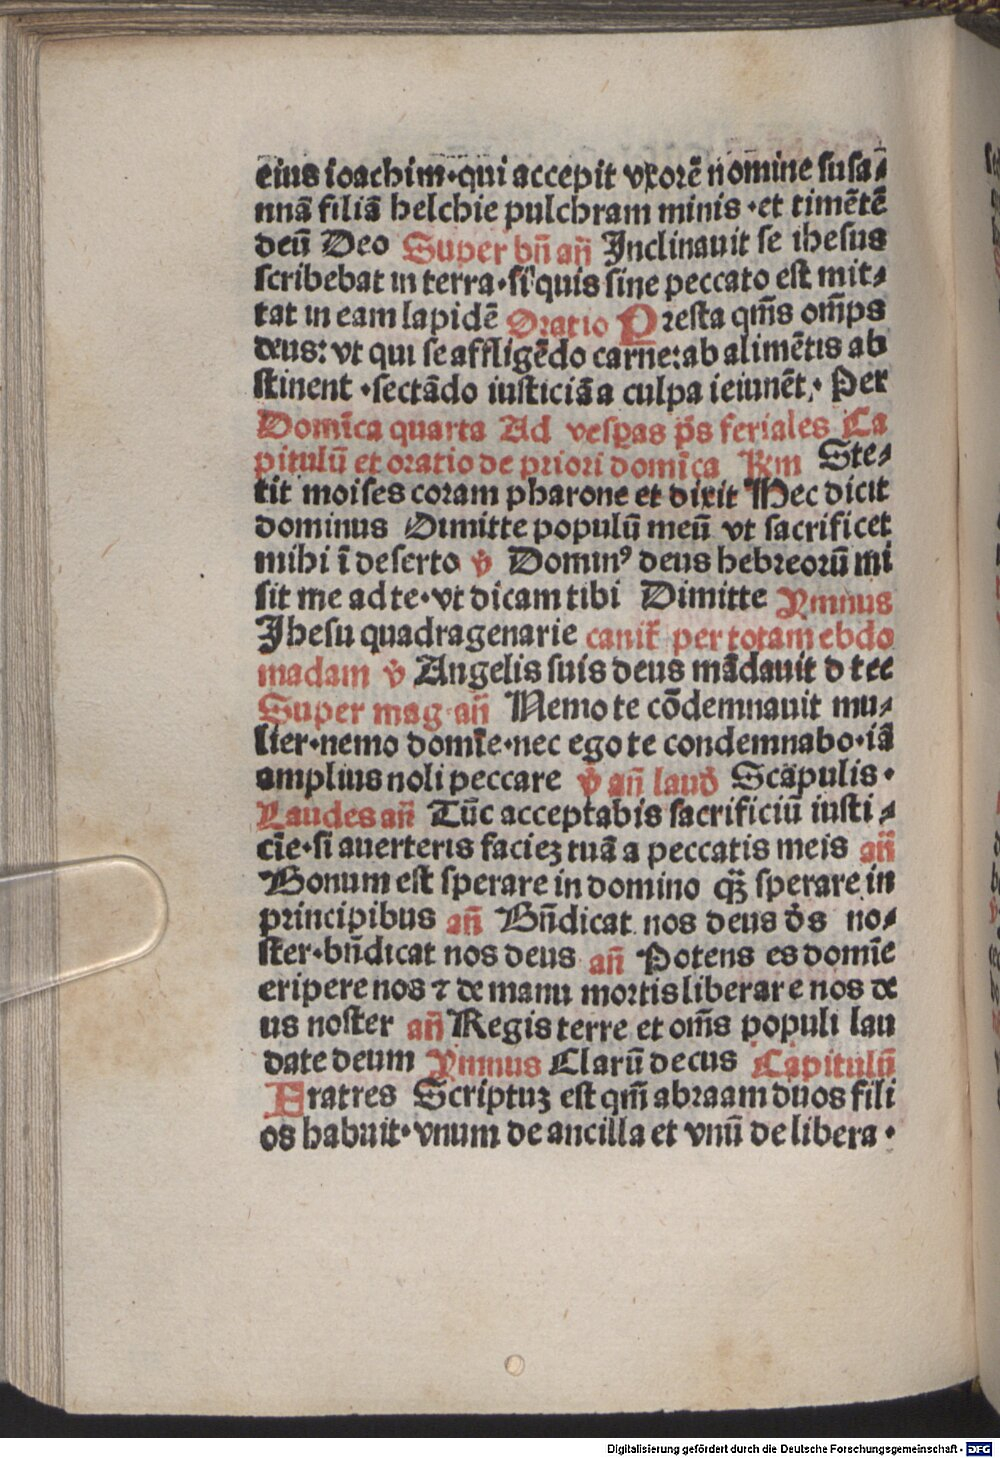 eius ioachim·qui accepit vxorē nomine susa⸗
nnā filiā helchie pulchram nimis·et timētē
deū Deo Super bn̄ an̄ Inclinauit se ihesus
scribebat in terra·si quis sine peccato est mit⸗
tat in eam lapidē Oratio Presta qm̄s om̄ps
deus: vt qui se affligēdo carne: ab alimētis ab
stinent·sectādo iusticiā a culpa ieiunēt· Per
Domīca quarta Ad vesꝑas p̄s feriales Ca
pitulū et oratio de priori domīca Rm Ste⸗
tit moises coram pharone et dixit Hec dicit
dominus Dimitte populū meū vt sacrificet
mihi ī deserto v̄ Dominꝰ deus hebreorū mi
sit me ad te·vt dicam tibi Dimitte Ymnus
Jhesu quadragenarie canit᷑ per totam ebdo
madam v̄ Angelis suis deus mādauit d tec
Super mag·an̄ Nemo te cōdemnauit mu⸗
lier·nemo domīe·nec ego te condemnabo·iā
amplius noli peccare v̄ an̄ laud̄ Scapulis·
Laudes an̄ Tūc acceptabis sacrificiū iusti⸗
cīe·si auerteris faciez tuā a peccatis meis an̄
Bonum est sperare in domino qꝫ̄ sperare in
principibus an̄ Bn̄dicat nos deus d̄s no⸗
ster·bn̄dicat nos deus an̄ Potens es domīe
eripere nos ⁊ de manu mortis liberare nos de
us noster an̄ Regis terre et om̄s populi lau
date deum Ymnus Clarū decus Capitulū
Fratres Scriptuꝫ est qm̄ abraam duos fili
os habuit·vnum de ancilla et vnū de libera·
Digitalisierung gefördert durch die Deutsche Forschungsgemeinschaft - DFG